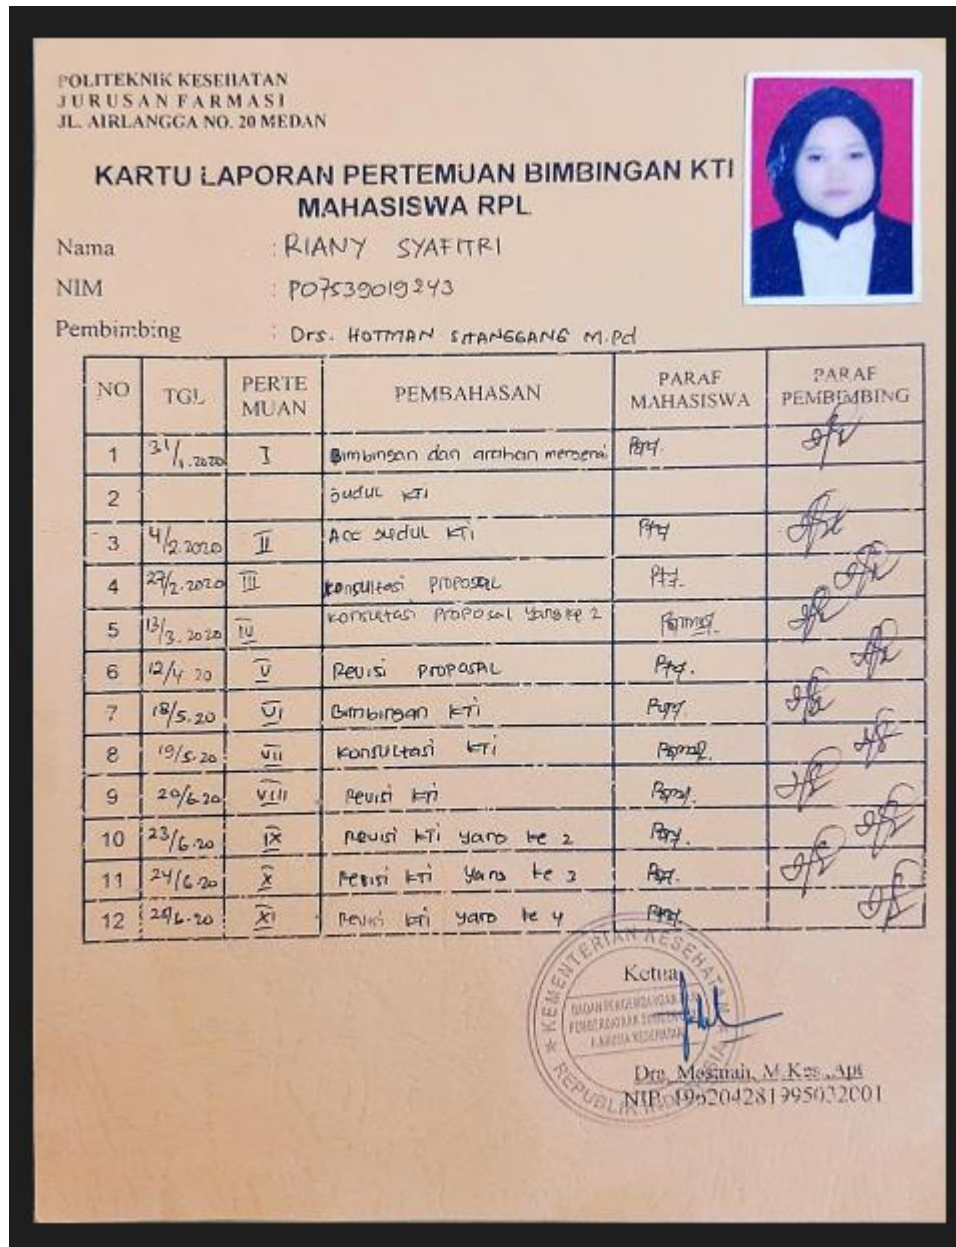 POLITEKNIK KESEHATAN
JURUSAN FARMASI
JL. AIRLANGGA NO. 20 MEDAN
KARTU LAPORAN PERTEMUAN BIMBINGAN KTI
MAHASISWA RPL
Nama : RIANY SYAFITRI
NIM : P07539019243
Pembimbing : Drs. HOTMAN SITANGGANG M.Pd
NO TGL PERTE MUAN PEMBAHASAN PARAF MAHASISWA PARAF PEMBIMBING
1 31/1.2020 I Bimbingan dan arahan mengenai
2 Judul KTI
3 4/2.2020 II Acc Judul KTI
4 27/2.2020 III Konsultasi Proposal
5 13/3.2020 IV Konsultasi Proposal yang ke 2
6 12/4.20 V Revisi Proposal
7 18/5.20 VI Bimbingan KTI
8 19/5.20 VII Konsultasi KTI
9 20/6.20 VIII Revisi KTI
10 23/6.20 IX Revisi KTI yang ke 2
11 24/6.20 X Revisi KTI yang ke 3
12 /6.20 XI Revisi KTI yang ke 4
KEMENTERIAN KESEHATAN
REPUBLIK INDONESIA
Ketua
Dra. Masniah, M.Kes., Apt
NIP. 196204281995032001